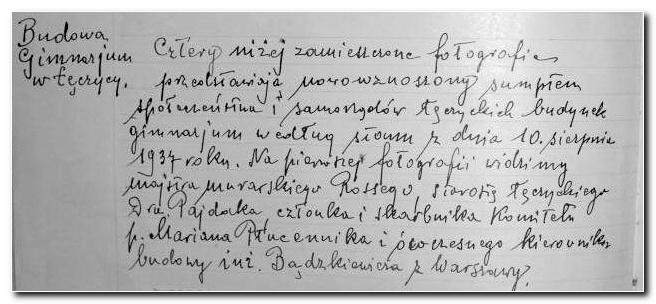 Budowa
Gimnazjum
w Łęczycy.
Cztery niżej zamieszczone fotografie
przedstawiają nowowznoszony sumptem
społeczeństwa i samorządów łęczyckich budynek
gimnazjum według stanu z dnia 10. sierpnia
1937 roku. Na pierwszej fotografii widzimy
majstra murarskiego Rossego, starostę łęczyckiego
Dra. Pajdaka, członka i skarbnika Komitetu
p. Mariana Płucennika i ówczesnego kierownika
budowy inż. Bądzkiewicza z Warszawy.